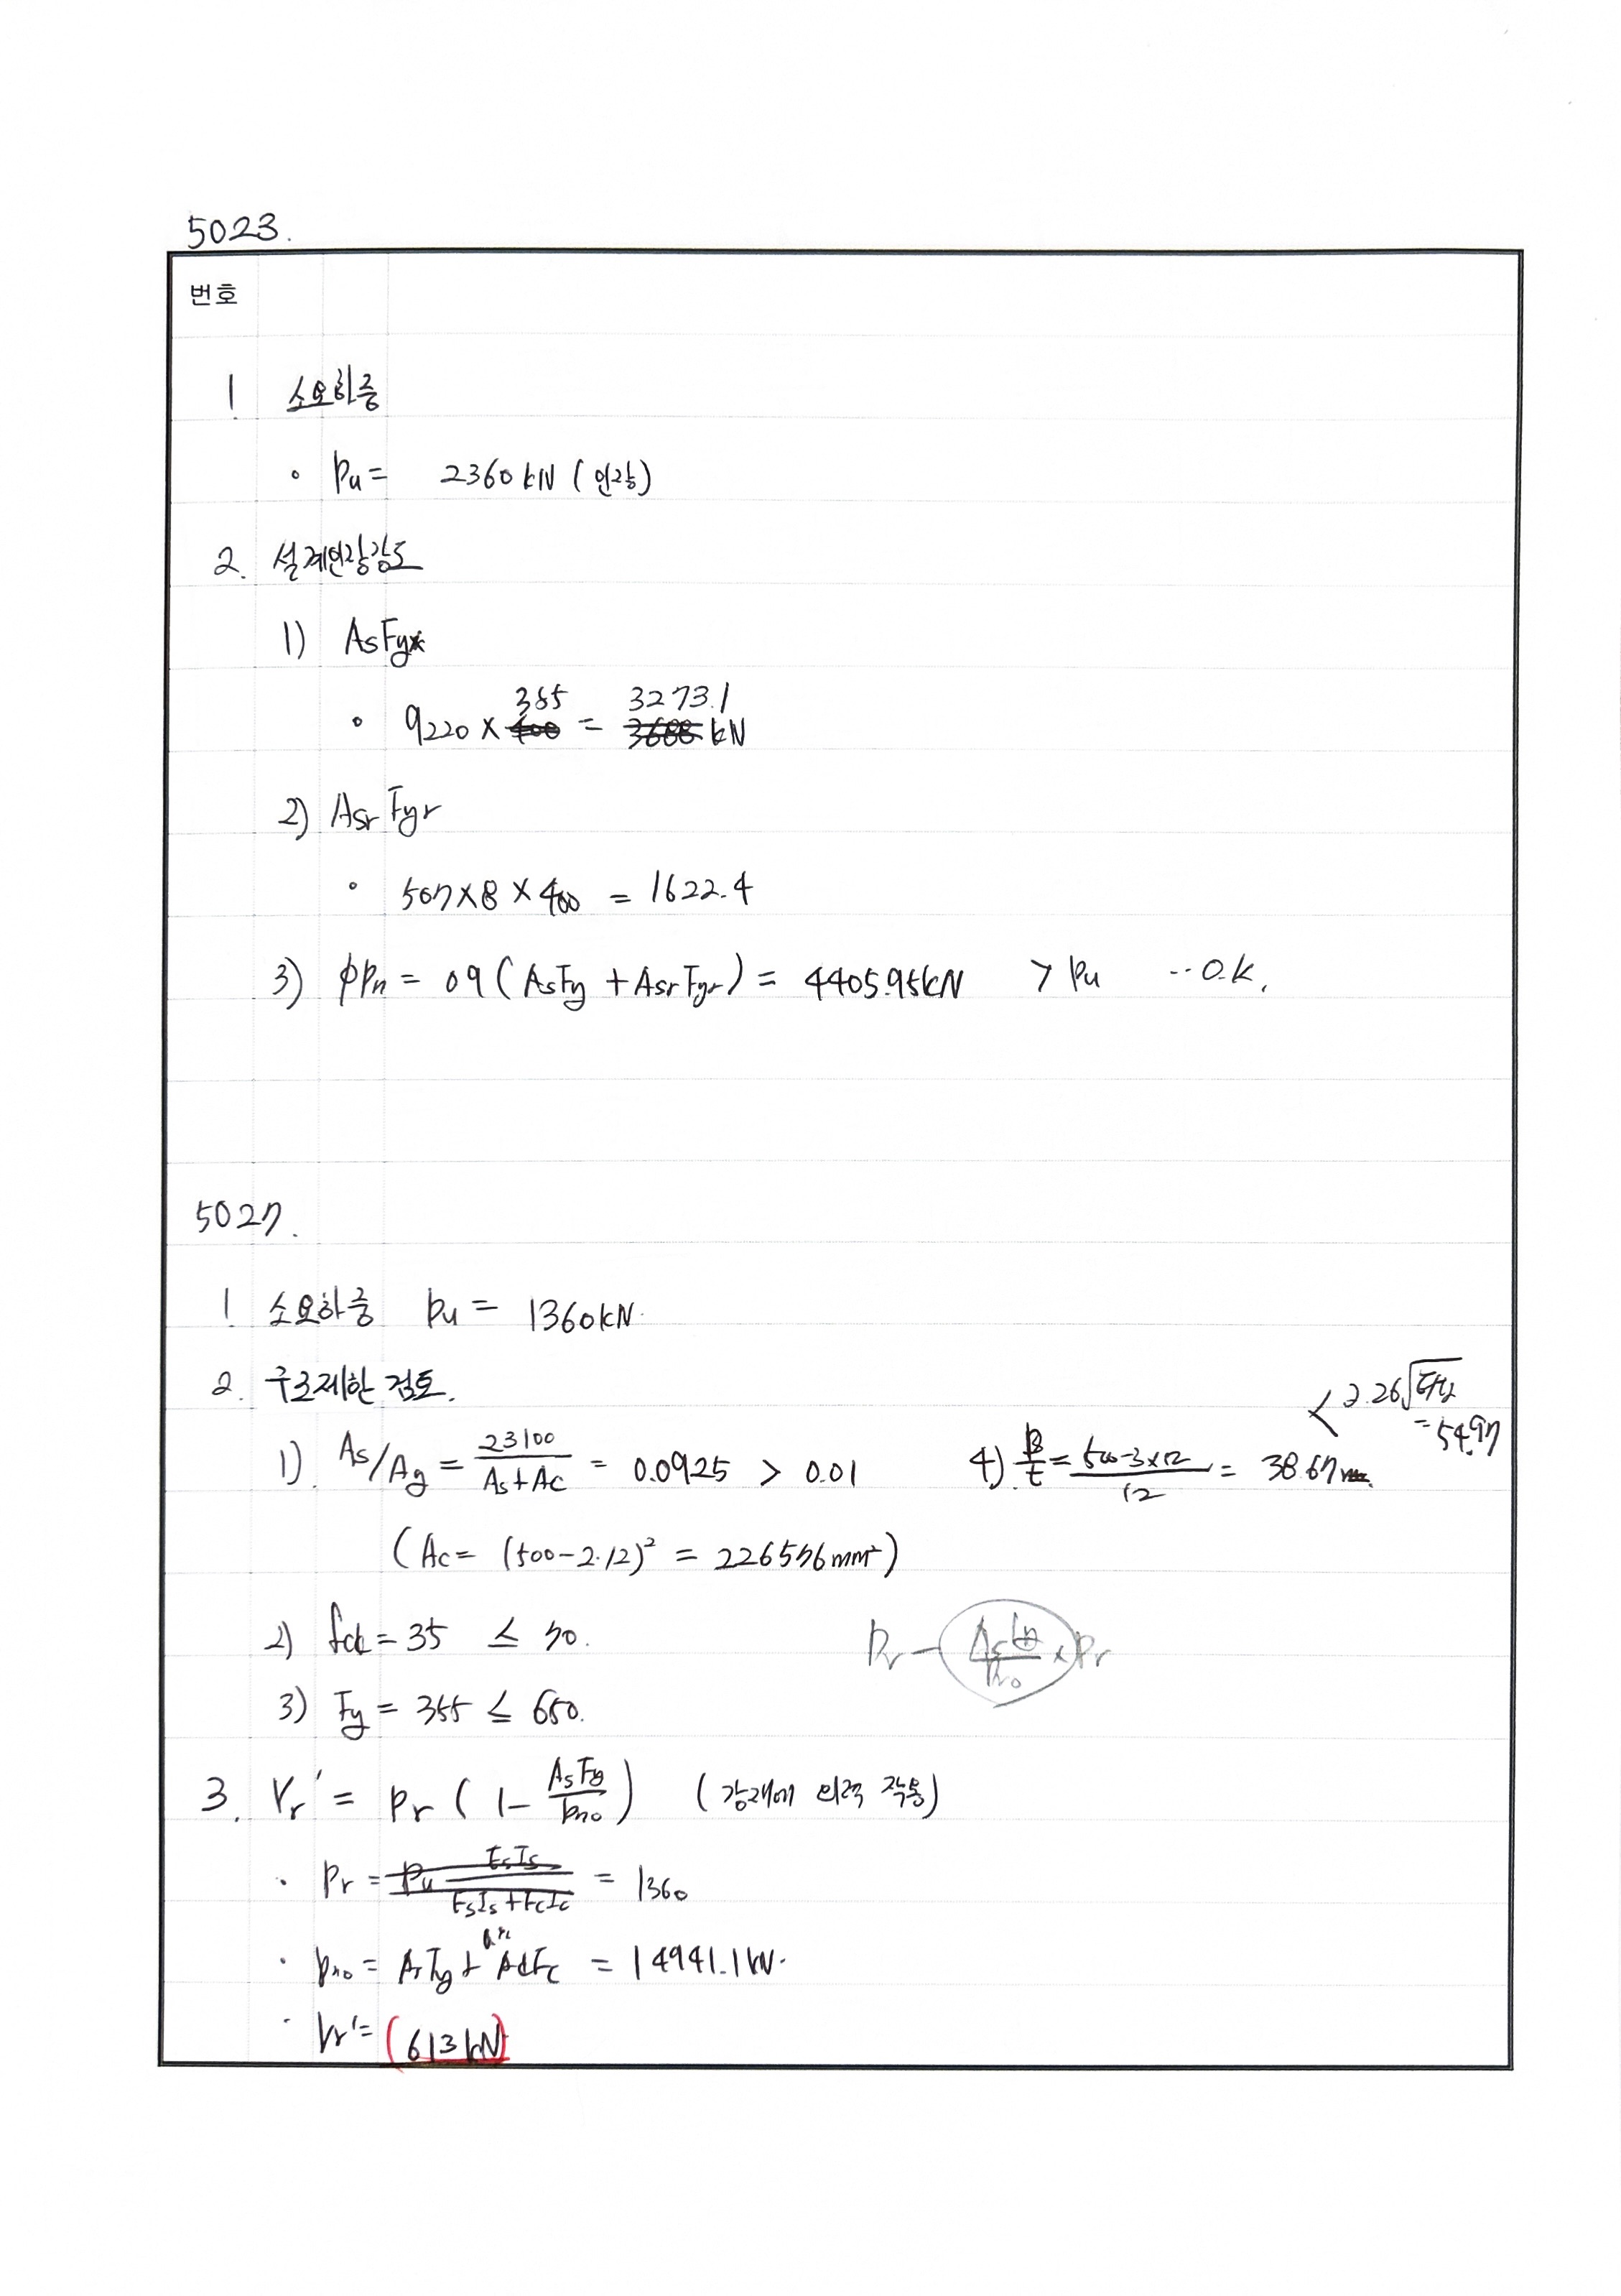 5023.
번호
1 소요하중
• Pu = 2360 kN (인장)
2. 설계인장강도
1) AsFy
• 9220 × 355 = 3273.1 kN
2) Asr Fyr
• 507 × 8 × 400 = 1622.4
3) ϕPn = 0.9 (AsFy + Asr Fyr) = 4405.95 kN > Pu ∙∙ O.K.
5027.
1 소요하중 Pu = 1360 kN.
2. 구조제한 검토.
1) As/Ag = 23100 / As + Ac = 0.0925 > 0.01
(Ac = (500 - 2·12)² = 226576 mm²)
4) B/t = 500 - 3×12 / 12 = 38.67 < 2.26√E/Fy = 54.97
2) fck = 35 ≤ 70.
Pr - AsFy/Pno × Pr
3) Fy = 355 ≤ 650.
3. Vr' = Pr (1 - AsFy/Pno) (강재에 외력 작용)
• Pr = Pu EsIs / EsIs + EcIc = 1360
• Pno = AsFy + Ac Fc = 14941.1 kN.
• Vr' = (613 kN)